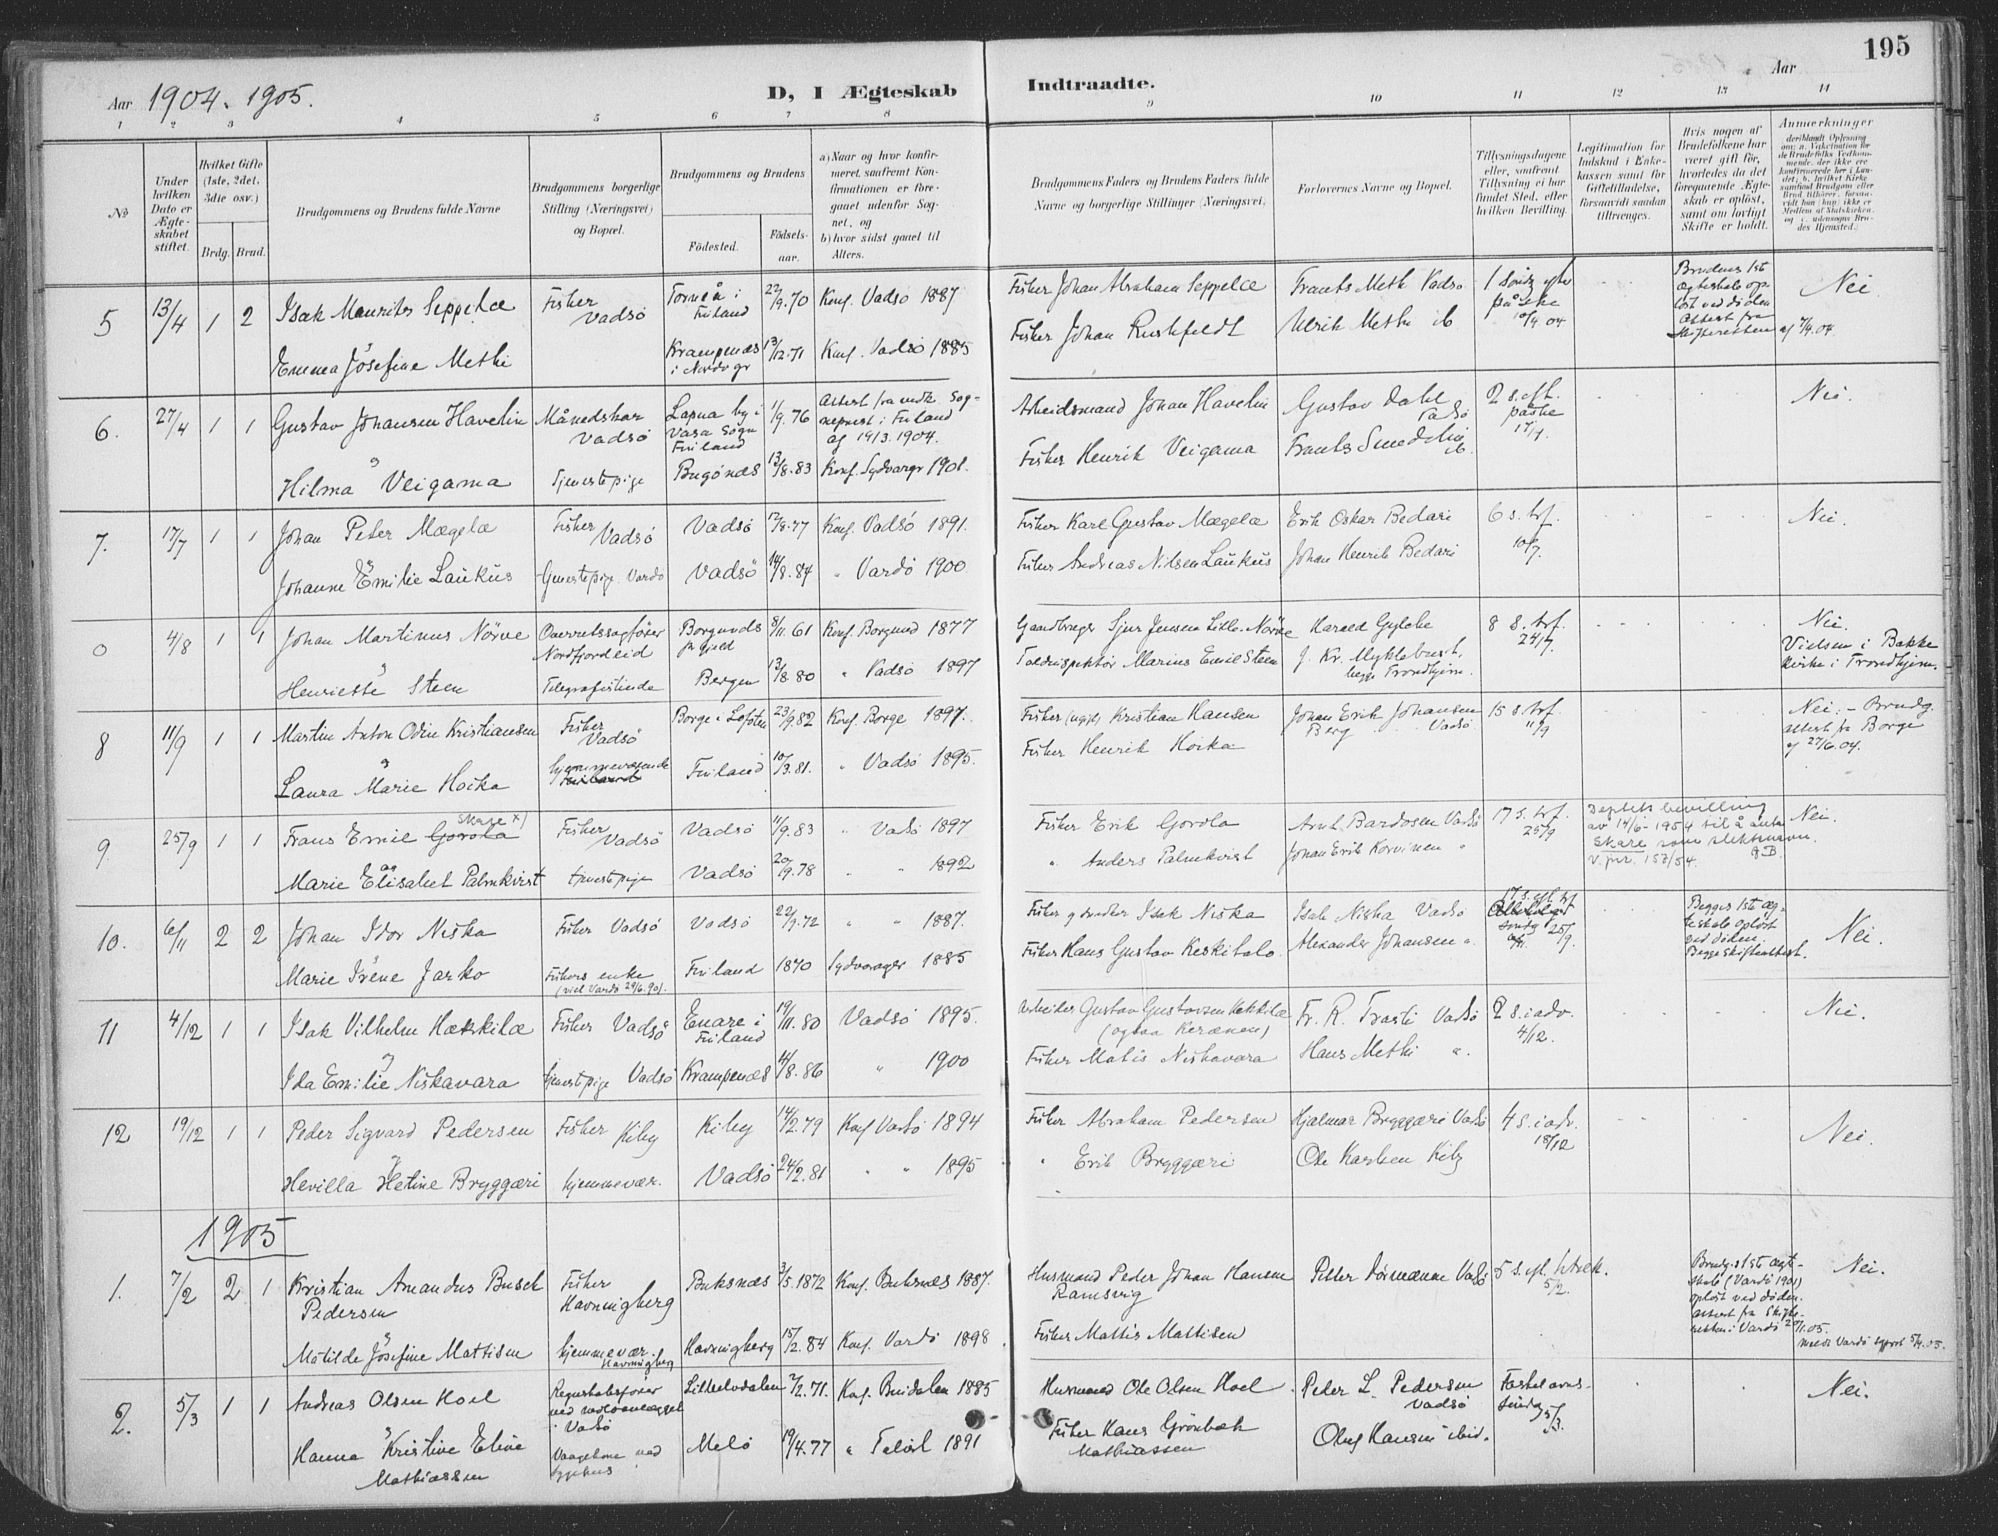 195
Aar 1904. 1905.
D, I Ægteskab Indtraadte.
Aar
1 2 3 4 5 6 7 8 9 10 11 12 13 14
No
Under hvilken Dato er Ægteskabet stiftet.
Hvilket Gifte (1ste, 2det, 3die osv.)
Brdg. Brud.
Brudgommens og Brudens fulde Navne
Brudgommens borgerlige Stilling (Næringsvei) og Bopæl.
Brudgommens og Brudens
Födested. Födselsaar.
a) Naar og hvor konfirmeret, saafremt Konfirmationen er foregaaet udenfor Sognet, og
b) hvor sidst gaaet til Alters.
Brudgommens Faders og Brudens Faders fulde Navne og borgerlige Stillinger (Næringsvei)
Forlovernes Navne og Bopæl.
Tillysningsdagene eller, saafremt Tillysning ei har fundet Sted, efter hvilken Bevilling.
Legitimation for Indskud i Enkekassen samt for Giftetilladelse, forsaavidt saadan tiltrænges.
Hvis nogen af Brudefolkene har været gift før, hvorledes da det foregaaende Ægteskab er opløst, samt om lovligt Skifte er holdt.
Anmærkninger
5 13/4 1 2 Isak Maurits Seppelæ Fisker Vadsö Torneå i Finland 22/9.70 Konf. Vadsö 1887 Fisker Johan Abraham Seppelæ Frants Meth Vadsö 1 Sönd. eft. påske 10/4 04 Nei
Brudens 1st Ægteskab opløst ved döden Attest fra Skifteretten af 7/4.04.
Emma Josefine Methi Krampenæs i Nordvgr 13/12.71 Konf. Vadsö 1885 Fisker Johan Rushfeldt Ulrik Methi ib
6. 27/4 1 1 Gustav Johansen Havelin Månedskar Vadsö Lapua by i Vasa Sogn Finland 1/9.76 Attest fra vedk. Sogneprest i Finland af 19/3.1904. Arbeidsmand Johan Havelin Gustav Dahl Vadsö 2 s. eft. påske 17/4. Nei.
Hilma Veigama Tjenestepige Bugönæs 13/8.83 Konf. Sydvarger 1901. Fisker Henrik Veigama Frants Smedelin ib.
7. 17/7 1 1 Johan Peter Mægelæ Fisker Vadsö Vadsö 12/8.77 Konf. Vadsö 1891. Fisker Karl Gustav Mægelæ Erik Oskar Bedari 6 s. trf. 10/7. Nei.
Johanne Emilie Laukus Tjenestepige Vardö Vadsö 14/8.84 " Vardö 1900 Fisker Andreas Nilsen Laukus Johan Henrik Bedari
0 4/8 1 1 Johan Martinus Nörve Overretssagförer Nordfjordeid Borgunds prgjeld 8/11.61 Konf. Borgund 1877 Gaardbruger Sjur Jensen Lille-Nörve Harald Gylche 8 S. trf. 24/7. Nei. Vielsen i Bakke Kirke i Trondhjem.
Henriette Steen Telegrafistinde Bergen 13/8.80 " Vadsö 1897 Toldinspektör Marius Emil Steen J. Kr. Myklebust. begge Trondhjem.
8 11/9 1 1 Martin Anton Odin Kristiansen Fisker Vadsö Borge i Lofoten 23/9.82 Konf. Borge 1897. Fisker (ugift) Kristian Hansen Johan Erik Johansen Berg Vadsö 15 s. trf. 11/9 Nei. - Brudg. attest fr Borge af 27/6.04.
Laura Marie Hoika hjemmeværende Finland 10/3.81. " Vadsö 1895. Fisker Henrik Hoika
9. 25/9 1 1 Frans Emil Gorola Skare x) Fisker Vadsö Vadsö 11/9.83 " Vadsö 1897 Fisker Erik Gorola Arnt Bardosen Vadsö 17 s. trf. 25/9 Nei.
Deptets bevilling av 14/6-1954 til å anta Skare som slektsnavn. v. jnr. 153/54.
Marie Elisabet Palmkvist tjenestepige Vadsö 20/9.78 " " 1892 " Anders Palmkvist Johan Erik Korvinen "
10. 6/11 2 2 Johan Idor Niska Fisker Vadsö Vadsö 22/9.72 " 1887. Fisker g snedker Isak Niska Isak Niska Vadsö 25/9. Nei.
Begges 1st ægteskab opløst ved döden. Begge Skifteattest.
Marie Irene Jarko Fiskers enke (viet Vardö 29/6.90). Finland 1870 Sydvarager 1885 Fisker Hans Gustav Keskitalo. Alexander Johansen ".
11 4/12 1 1 Isak Vilhelm Hækkilæ Fisker Vadsö Enare i Finland 19/11.80 Vadsö 1895. Arbeider Gustav Gustavsen Hekkilæ (ogsaa Keränen) Fr. R. Trasti Vadsö 2 s. i adv. 4/12. Nei.
Ida Emilie Niskavara tjenestepige Vadsö Krampenæs 4/8.86 " 1900 Fisker Matis Niskavara Hans Methi ".
12 19/12 1 1 Peder Sigvard Pedersen Fisker Kiby Kiby 14/2.79 Konf Vadsö 1894 Fisker Abraham Pedersen Hjalmar Bryggæri Vadsö 4 s. i adv. 18/12 Nei.
Hevilla Hetine Bryggæri hjemmevær. Vadsö 24/2.81 " " 1895 " Erik Bryggæri Ole Karlsen Kiby
1905
1. 7/2 2 1 Kristian Amandus Busch Pedersen Fisker Havningberg Buksnæs 3/5.1872 Konf. Buksnæs 1887. Husmand Peder Johan Hansen Ramsvig Petter Dörmænen Vadsö 5 s. eft. h3k. 5/2. Nei.
Brudg. 1st ægteskab (Vardö 1901) opløst ved döden. attest fra Skifteretten i Vardö 20/1.05.
Matilde Josefine Mattisen hjemmevær. Havningberg Havningberg 15/2.84 Konf. Vardö 1898 Fisker Mattis Mattisen
2. 5/3 1 1 Andreas Olsen Hoel Regnskabsförer ved moloanlægget i Vadsö Lilleelvdalen 2/2.71. Konf. Buidalen 1885 Husmand Ole Olsen Hoel Peter L. Pedersen Vadsö Fastelavns söndag 5/3. Nei.
Hanna Kristine Eline Mathiassen Vaagekone ved sygehus Melö 19/4.77 " 1891 Fisker Hans Grönbæk Mathiassen Oluf Hansen ibid.